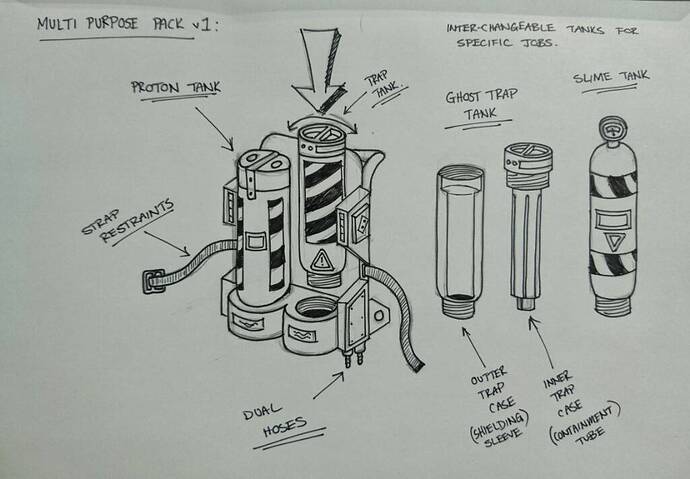 MULTI PURPOSE PACK v1:
INTER-CHANGEABLE TANKS FOR
SPECIFIC JOBS.
PROTON TANK
TRAP
TANK.
GHOST TRAP
TANK
SLIME TANK
STRAP
RESTRAINTS
DUAL
HOSES
OUTTER
TRAP
CASE
(SHIELDING)
SLEEVE
INNER
TRAP
CASE
(CONTAINMENT)
TUBE